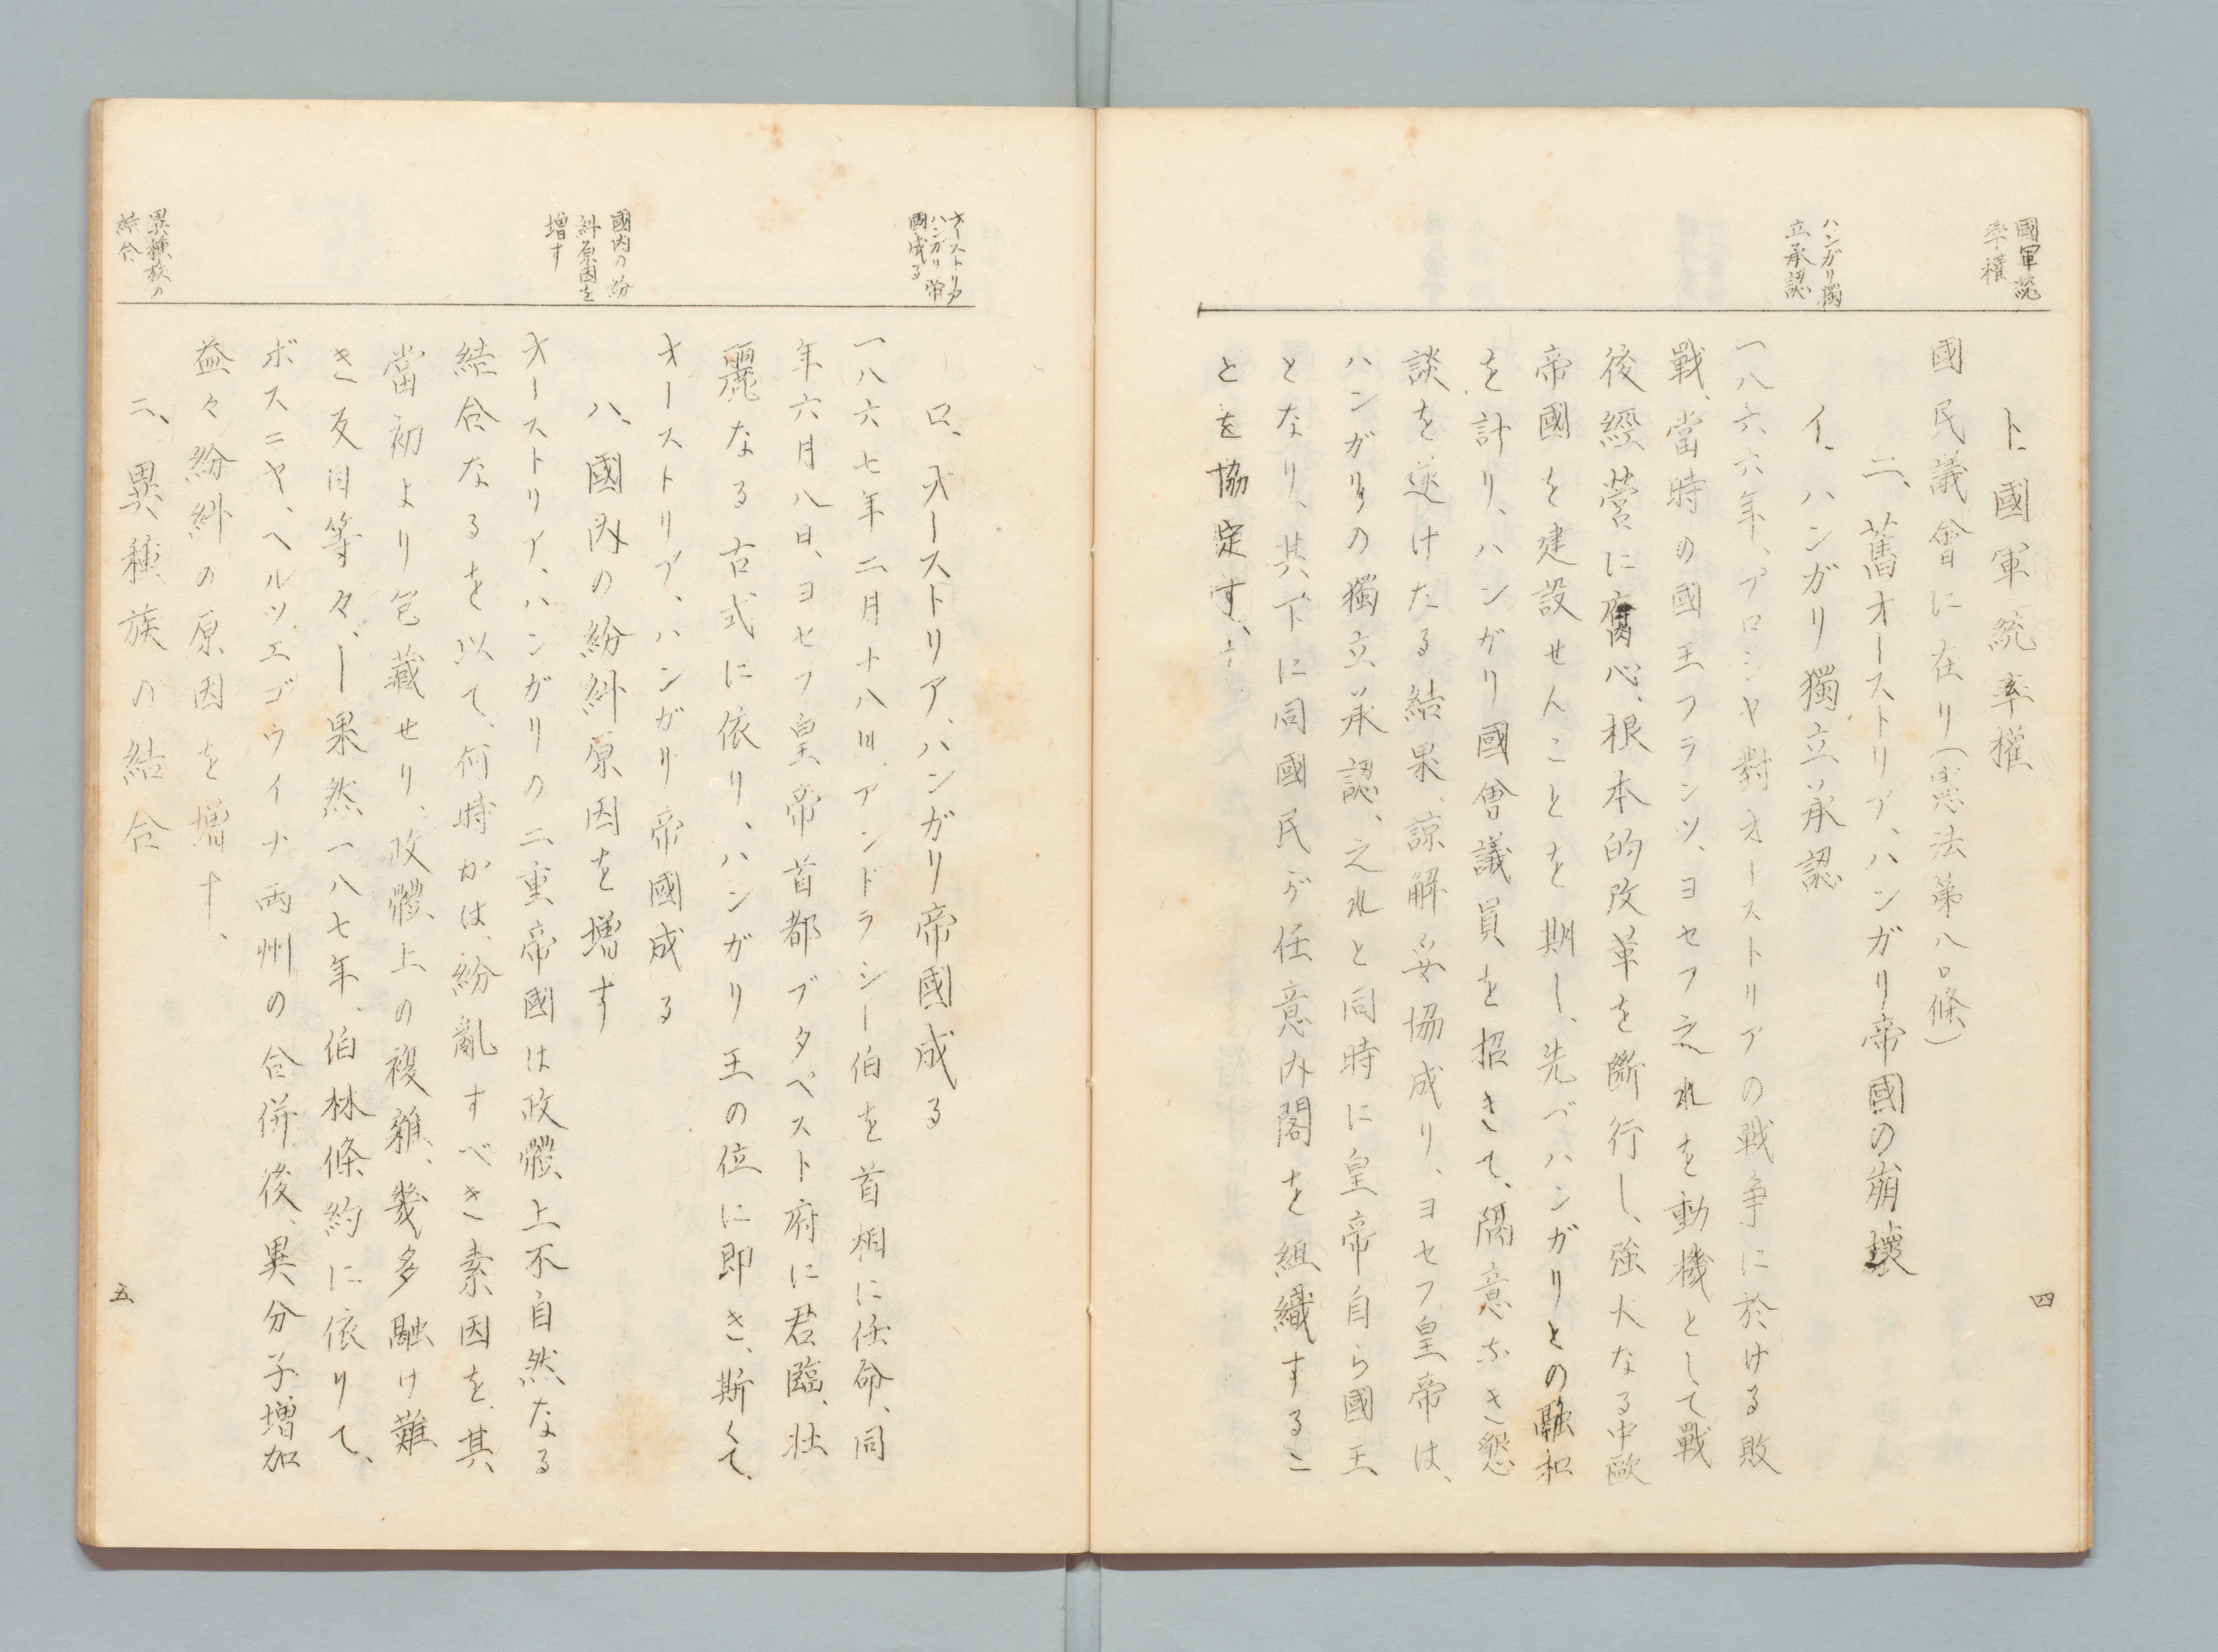 國軍統
率權
ハンガリ獨
立承認
ト、國軍統率權
國民議會に在り(憲法第八〇條)
二、舊オーストリア、ハンガリ帝國の崩壞
イ、ハンガリ獨立承認
一八六六年、プロシヤ對オーストリアの戰爭に於ける敗
戰、當時の國王フランツ、ヨセフ之れを動機として戰
後經營に腐心、根本的改革を斷行し、強大なる中歐
帝國を建設せんことを期し、先づハンガリとの融和
を計り、ハンガリ國會議員を招きて、隔意なき懇
談を遂けたる結果、諒解妥協成り、ヨセフ皇帝は、
ハンガリの獨立承認、之れと同時に皇帝自ら國王
となり、其、下に同國民が任意内閣を組織するこ
とを協定す、
四
オーストリア
ハンガリ帝
國成る
國内の紛
糾原因を
増す
異種族の
結合
ロ、オーストリア、ハンガリ帝國成る
一八六七年二月十八日、アンドラシー伯を首相に任命、同
年六月八日、ヨセフ皇帝首都ブタペスト府に君臨、壯
麗なる古式に依り、ハンガリ王の位に即き、斯くて、
オーストリア、ハンガリ帝國成る
ハ、國内の紛糾原因を増す
オーストリア、ハンガリの二重帝國は政體上不自然なる
結合なるを以て、何時かは、紛亂すべき素因を、其、
當初より包藏せり、政體上の複雜、幾多融け難
き反目等々、ー果然一八七年、伯林條約に依りて、
ボスニヤ、ヘルツエゴウイナ兩州の合併後、異分子増加
益々紛糾の原因を増す、
ニ、異種族の結合
五